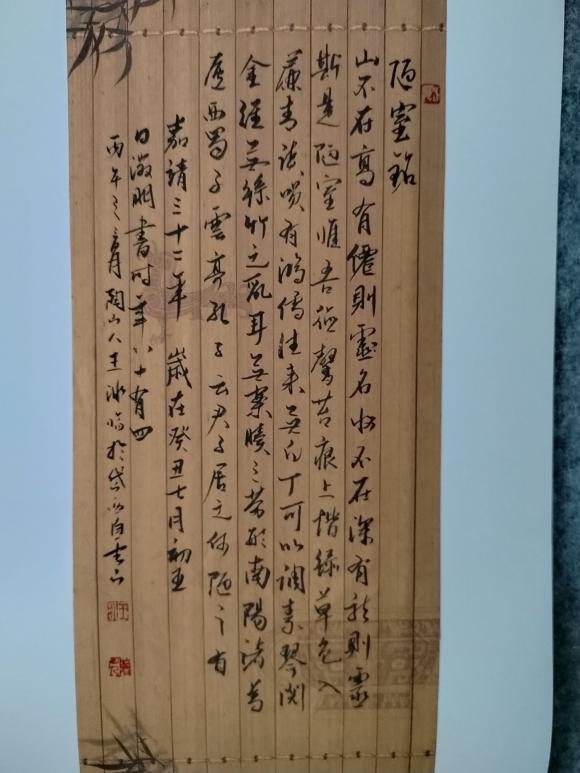 陋室銘
山不在高有僊則靈名水不在深有龍則靈
斯是陋室惟吾德馨苔痕上堦綠草色入
簾青談咲有鴻儒往來無白丁可以調素琴閱
金經無絲竹之亂耳無案牘之勞形南陽諸葛
廬西蜀子雲亭孔子云君子居之何陋之有
嘉靖三十二年 歲在癸丑七月初五
日徵明書時年八十有四
丙午之月陶山人王冰臨於岱